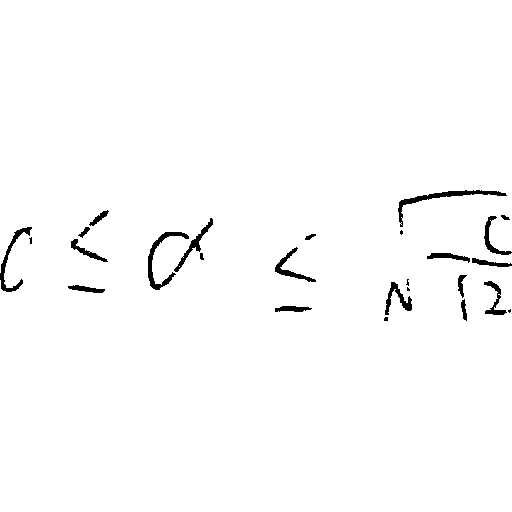 c ≤ α ≤ √(c/12)